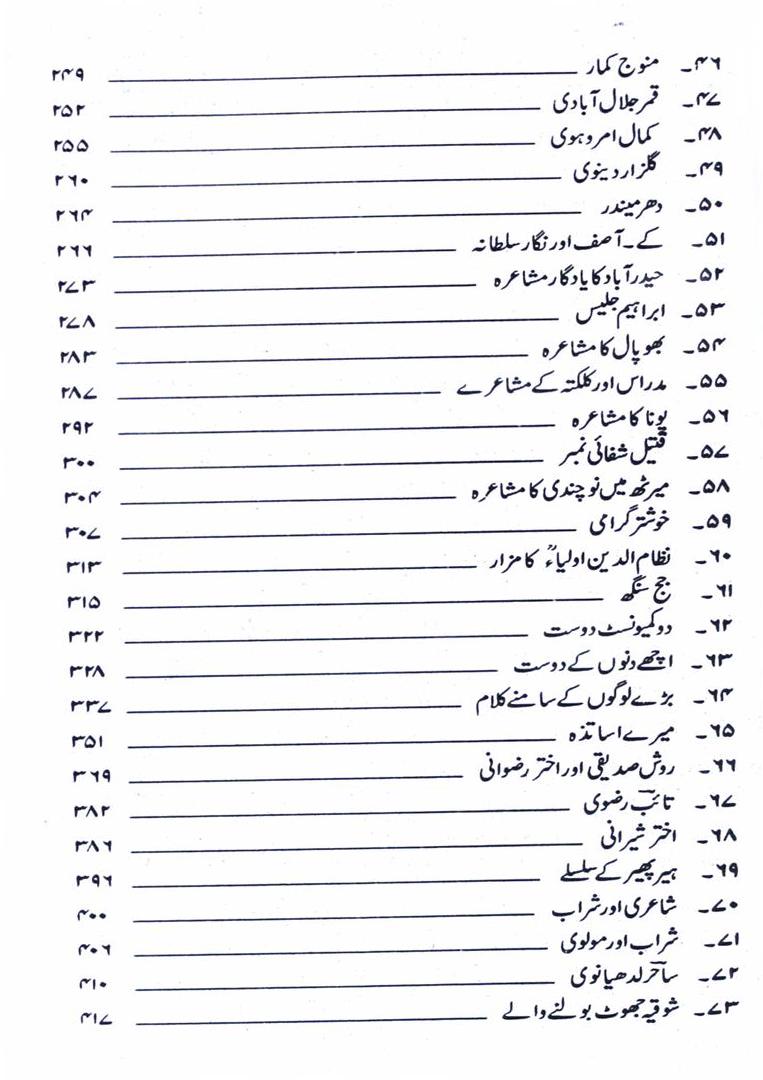 ۴۶۔ منوج کمار ۲۴۹
۴۷۔ قمر جلال آبادی ۲۵۲
۴۸۔ کمال امروہوی ۲۵۵
۴۹۔ گلزار دینوی ۲۶۰
۵۰۔ دھرمیندر ۲۶۴
۵۱۔ کے۔ آصف اور نگار سلطانہ ۲۶۶
۵۲۔ حیدرآباد کا یادگار مشاعرہ ۲۷۳
۵۳۔ ابراہیم جلیس ۲۷۸
۵۴۔ بھوپال کا مشاعرہ ۲۸۳
۵۵۔ مدراس اور کلکتہ کے مشاعرے ۲۸۷
۵۶۔ پونا کا مشاعرہ ۲۹۲
۵۷۔ قتیل شفائی نمبر ۳۰۰
۵۸۔ میرٹھ میں نوچندی کا مشاعرہ ۳۰۴
۵۹۔ خوشتر گرامی ۳۰۷
۶۰۔ نظام الدین اولیاءؒ کا مزار ۳۱۳
۶۱۔ جج سنگھ ۳۱۵
۶۲۔ دو کمیونسٹ دوست ۳۲۲
۶۳۔ اچھے دنوں کے دوست ۳۲۸
۶۴۔ بڑے لوگوں کے سامنے کلام ۳۳۷
۶۵۔ میرے اساتذہ ۳۵۱
۶۶۔ روش صدیقی اور اختر رضوانی ۳۶۹
۶۷۔ تائبؔ رضوی ۳۸۲
۶۸۔ اختر شیرانی ۳۸۶
۶۹۔ ہیر پھیر کے سلسلے ۳۹۶
۷۰۔ شاعری اور شراب ۴۰۰
۷۱۔ شراب اور مولوی ۴۰۶
۷۲۔ ساحرؔ لدھیانوی ۴۱۰
۷۳۔ شوقیہ جھوٹ بولنے والے ۴۱۷